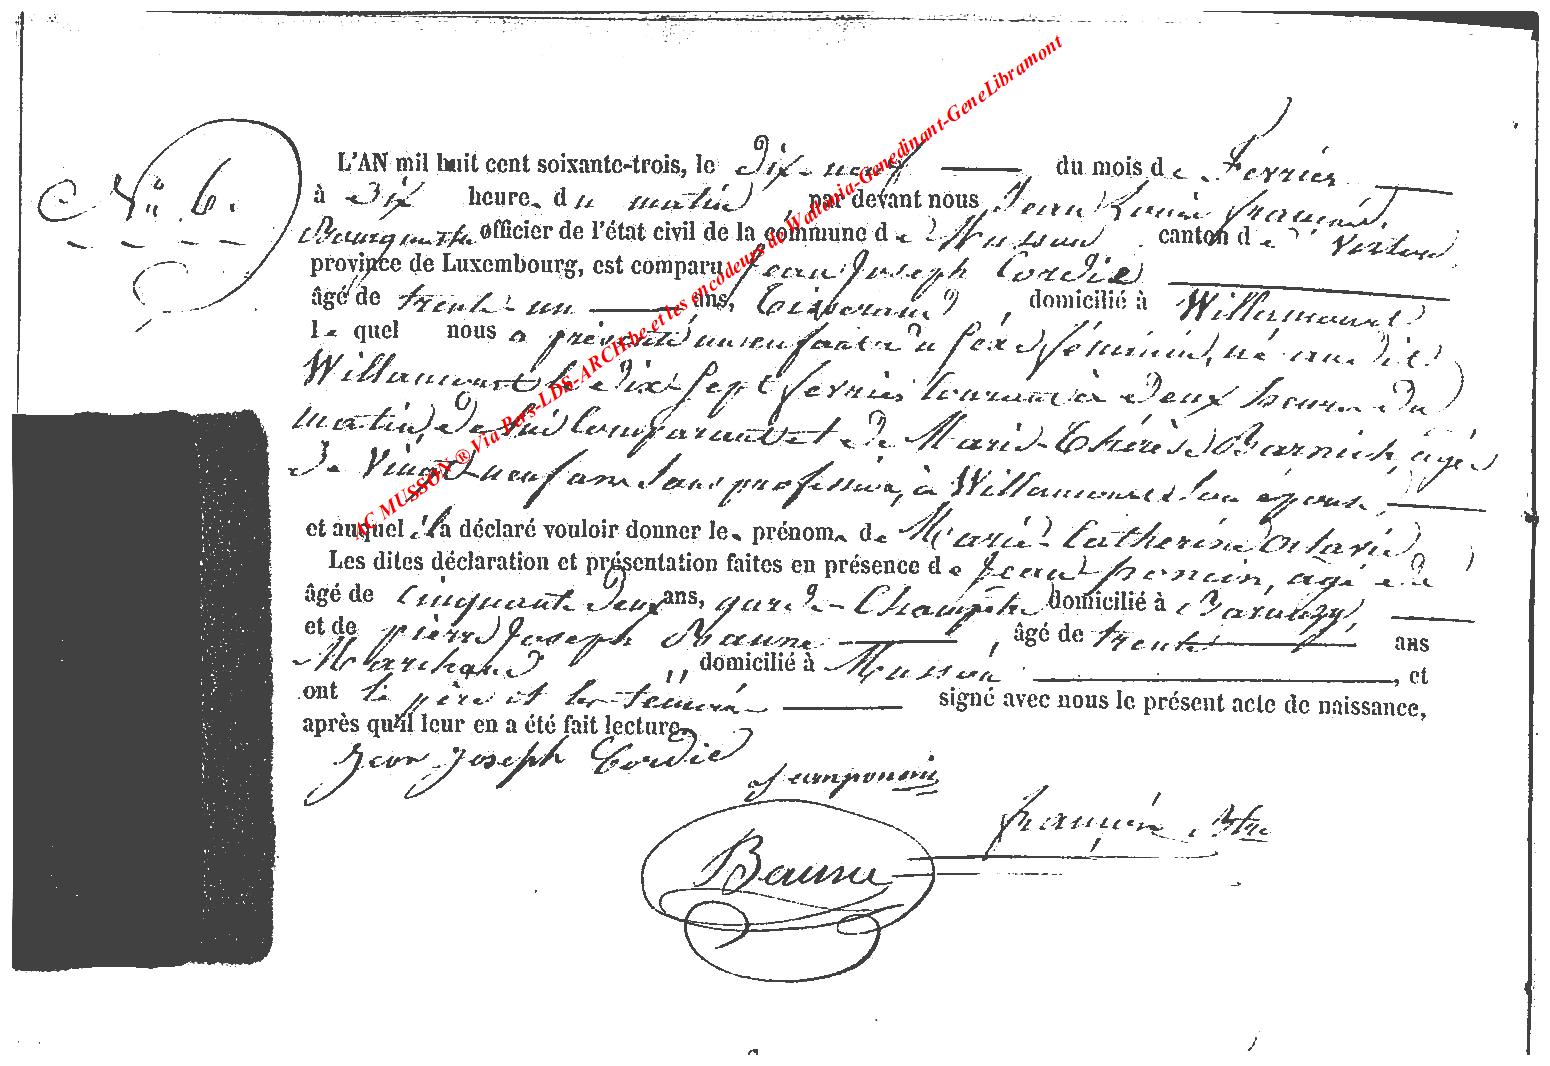 N° 6.
L'AN mil huit cent soixante-trois, le Dix-neuf du mois de Fevrier
à Dix heure du matin, par devant nous Jean Louis François
Bourguillon officier de l'état civil de la commune de Musson canton de Virton
province de Luxembourg, est comparu Jean Joseph Cordié
âgé de trente-un ans, Tisserand, domicilié à Willancourt
le quel nous a présenté un enfant du sexe féminin, né au dit
Willancourt le dix-sept fevrier courant à Deux heures du
matin, de lui Comparant et de Marie-Thérèse Barnich, agée
de Vingt-neuf ans sans profession, à Willancourt son épouse,
et auquel il a déclaré vouloir donner le prénom de Marie-Catherine Octavie
Les dites déclaration et présentation faites en présence de Jean poncin, agé de
âgé de cinquante Deux ans, garde-Champêtre domicilié à Baranzy,
et de pierre Joseph Baune, âgé de trente ans
Marchand, domicilié à Musson, et
ont le père et les témoins signé avec nous le présent acte de naissance,
après qu'il leur en a été fait lecture.
Jean Joseph Cordié
Jean poncin
François Btre
Baune
AC MUSSON ® Via Pers-LDS-ARCH.be et les encodeurs de Wallonia-Genedinant-GeneLibramont